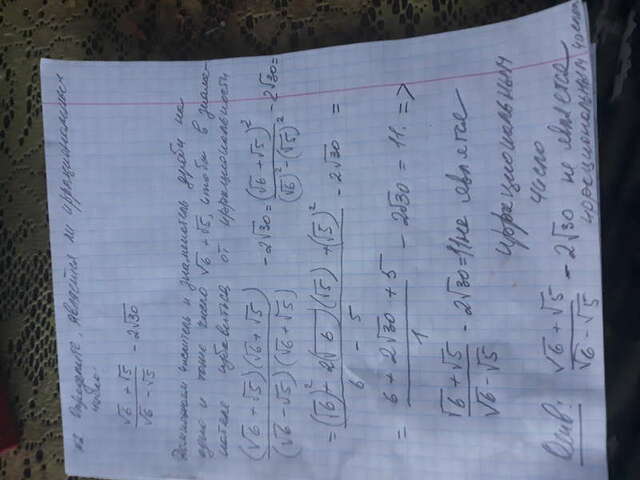 №2 Определите, является ли иррациональным
число
(√6 + √5)/(√6 − √5) − 2√30
Домножим числитель и знаменатель дроби на
одно и тоже число √6 + √5, чтобы в знаме-
нателе избавиться от иррациональности
(√6 + √5)(√6 + √5)/(√6 − √5)(√6 + √5) − 2√30 = (√6 + √5)²/((√6)² − (√5)²) − 2√30 =
= ((√6)² + 2(√6)(√5) + (√5)²)/(6 − 5) − 2√30 =
= (6 + 2√30 + 5)/1 − 2√30 = 11. =>
(√6 + √5)/(√6 − √5) − 2√30 = 11 не явлется
иррациональным
число
Ответ: (√6 + √5)/(√6 − √5) − 2√30 не является
иррациональным числом